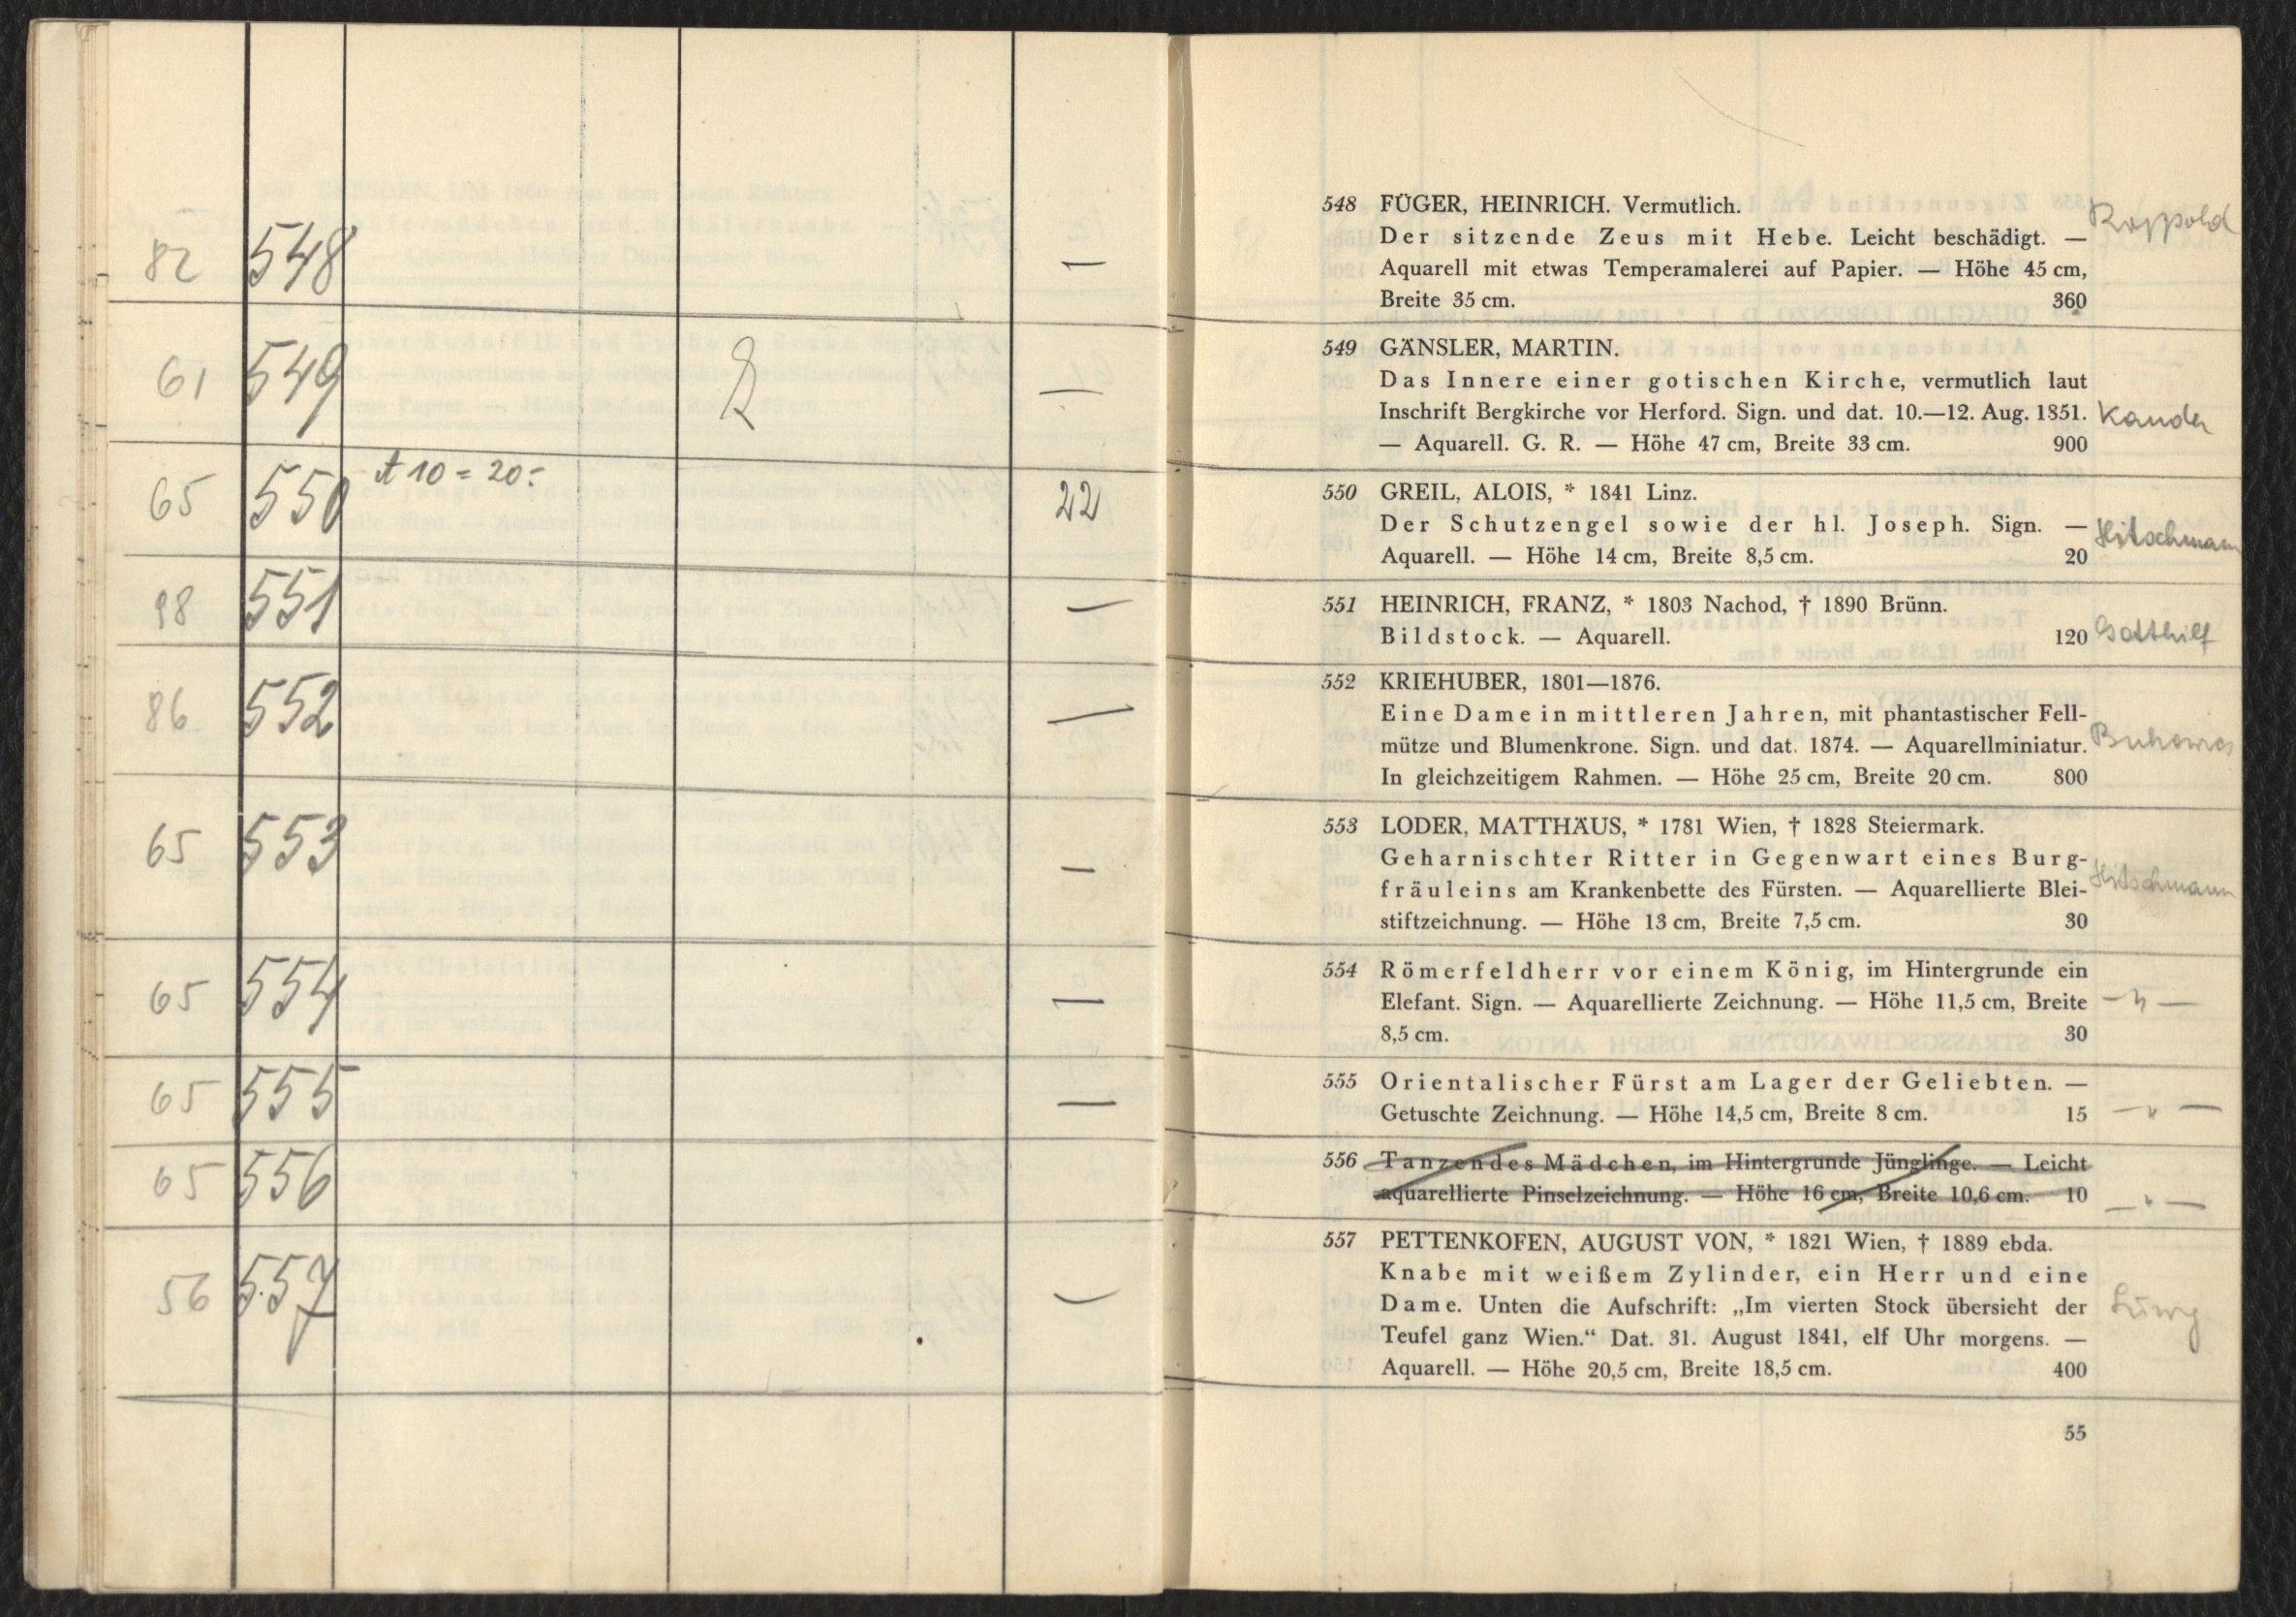 82 548 —
61 549 —
65 550 à 10 = 20.- 22
98 551 —
86 552 —
65 553 —
65 554 —
65 555 —
65 556
56 557 —
548 FÜGER, HEINRICH. Vermutlich.
Roppold
Der sitzende Zeus mit Hebe. Leicht beschädigt. —
Aquarell mit etwas Temperamalerei auf Papier. — Höhe 45 cm,
Breite 35 cm. 360
549 GÄNSLER, MARTIN.
Das Innere einer gotischen Kirche, vermutlich laut
Inschrift Bergkirche vor Herford. Sign. und dat. 10.—12. Aug. 1851.
— Aquarell. G. R. — Höhe 47 cm, Breite 33 cm. 900
550 GREIL, ALOIS, * 1841 Linz.
Der Schutzengel sowie der hl. Joseph. Sign. —
Hitschmann
Aquarell. — Höhe 14 cm, Breite 8,5 cm. 20
551 HEINRICH, FRANZ, * 1803 Nachod, † 1890 Brünn.
Bildstock. — Aquarell. 120 Gotthilf
552 KRIEHUBER, 1801—1876.
Eine Dame in mittleren Jahren, mit phantastischer Fell-
mütze und Blumenkrone. Sign. und dat. 1874. — Aquarellminiatur.
In gleichzeitigem Rahmen. — Höhe 25 cm, Breite 20 cm. 800
553 LODER, MATTHÄUS, * 1781 Wien, † 1828 Steiermark.
Geharnischter Ritter in Gegenwart eines Burg-
fräuleins am Krankenbette des Fürsten. — Aquarellierte Blei-
Hitschmann
stiftzeichnung. — Höhe 13 cm, Breite 7,5 cm. 30
554 Römerfeldherr vor einem König, im Hintergrunde ein
Elefant. Sign. — Aquarellierte Zeichnung. — Höhe 11,5 cm, Breite — " —
8,5 cm. 30
555 Orientalischer Fürst am Lager der Geliebten. —
Getuschte Zeichnung. — Höhe 14,5 cm, Breite 8 cm. 15 — " —
556 Tanzendes Mädchen, im Hintergrunde Jünglinge. — Leicht
aquarellierte Pinselzeichnung. — Höhe 16 cm, Breite 10,6 cm. 10 — " —
557 PETTENKOFEN, AUGUST VON, * 1821 Wien, † 1889 ebda.
Knabe mit weißem Zylinder, ein Herr und eine
Dame. Unten die Aufschrift: „Im vierten Stock übersieht der
Teufel ganz Wien.“ Dat. 31. August 1841, elf Uhr morgens. —
Aquarell. — Höhe 20,5 cm, Breite 18,5 cm. 400
55